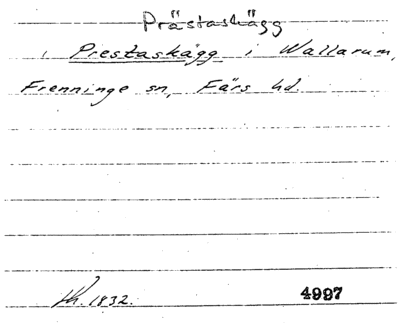 Prästaskägg
i Prestaskägg i Wallarum,
Frenninge sn, Färs hd.
1832.
4997